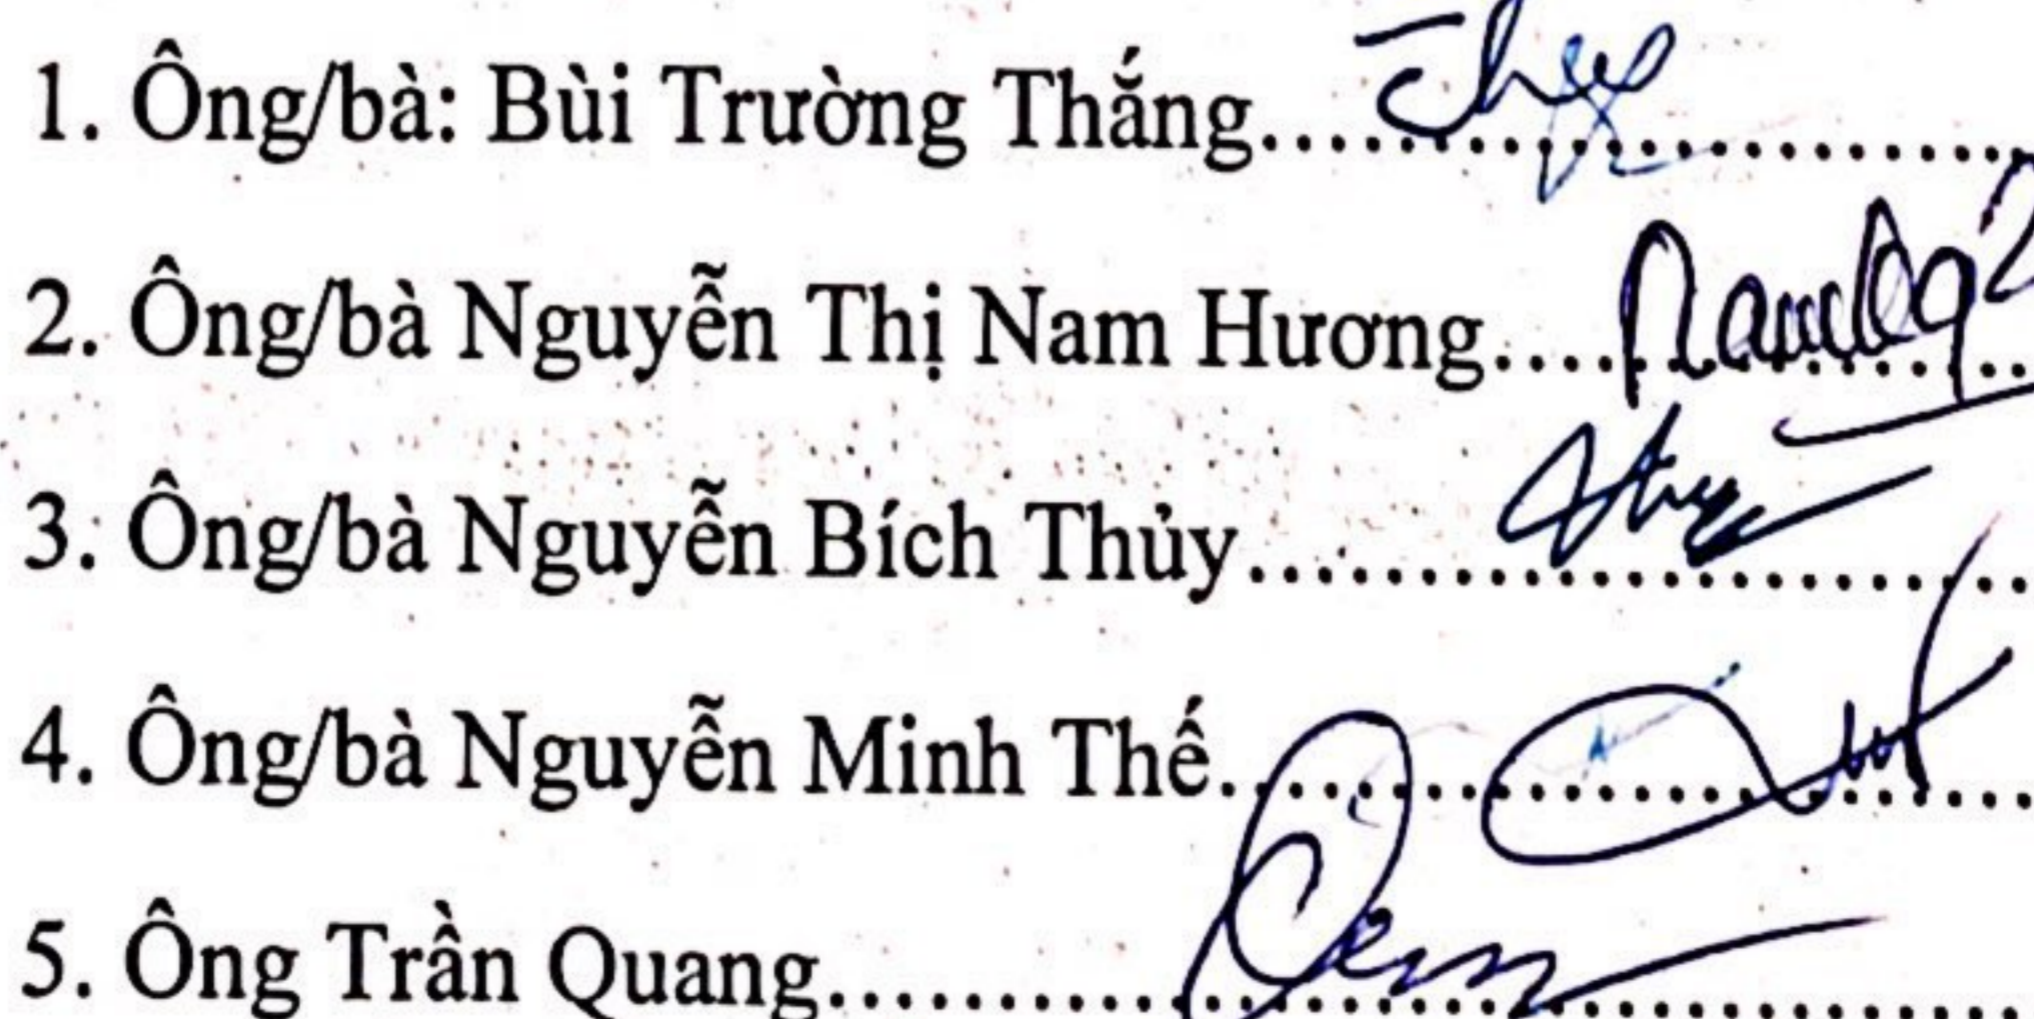 1. Ông/bà: Bùi Trường Thắng....................
2. Ông/bà Nguyễn Thị Nam Hương................
3. Ông/bà Nguyễn Bích Thủy........................
4. Ông/bà Nguyễn Minh Thế........................
5. Ông Trần Quang....................................